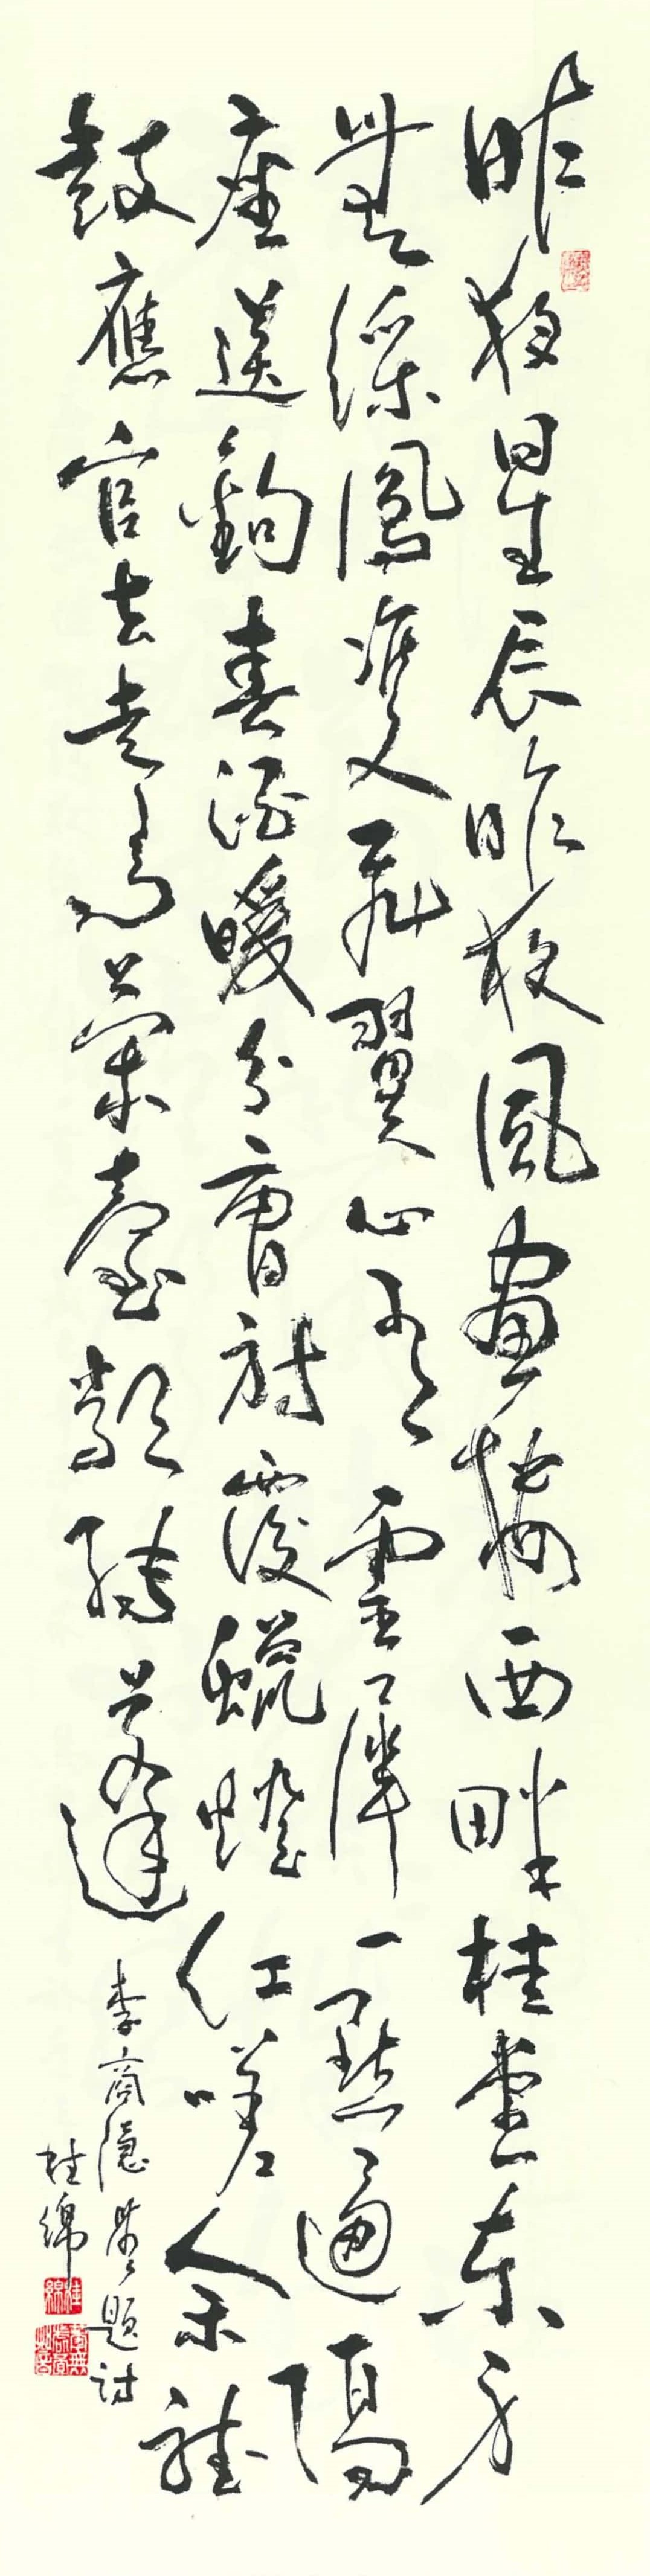 昨夜星辰昨夜風畫樓西畔桂堂東身
無綵鳳雙飛翼心有靈犀一點通隔
座送鉤春酒暖分曹射覆蠟燈紅嗟余聽
鼓應官去走馬蘭臺類轉蓬
李商隱無題詩
桂綿